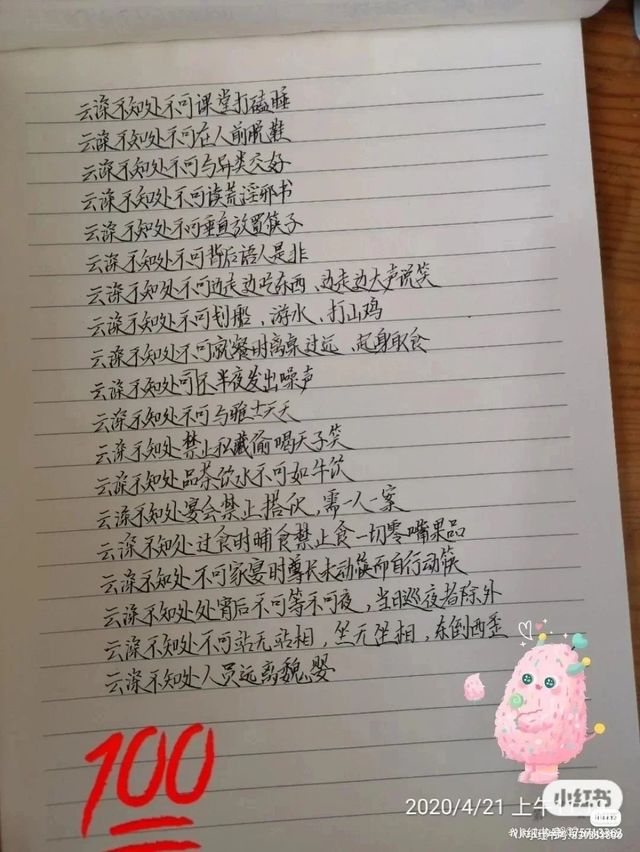 云深不知处不可课堂打磕睡
云深不知处不可在人前脱鞋
云深不知处不可与异类交好
云深不知处不可读荒淫邪书
云深不知处不可垂直放置筷子
云深不知处不可背后语人是非
云深不知处不可边走边吃东西、边走边大声说笑
云深不知处不可划船、游水、打山鸡
云深不知处不可就餐时离桌过远、起身取食
云深不知处半夜发出噪声
云深不知处不可与雅士
云深不知处禁止私藏偷喝天子笑
云深不知处品茶饮水不可如牛饮
云深不知处宴会禁止搭伙,需一人一案
云深不知处过食时晡食禁止食一切零嘴果品
云深不知处不可家宴时尊长未动筷而自行动筷
云深不知处处宵后不可等不可夜,当日巡夜者除外
云深不知处不可站无站相,坐无坐相,东倒西歪
云深不知处人员远离魏婴
100
小红书
2020/4/21 上午
小红书号: